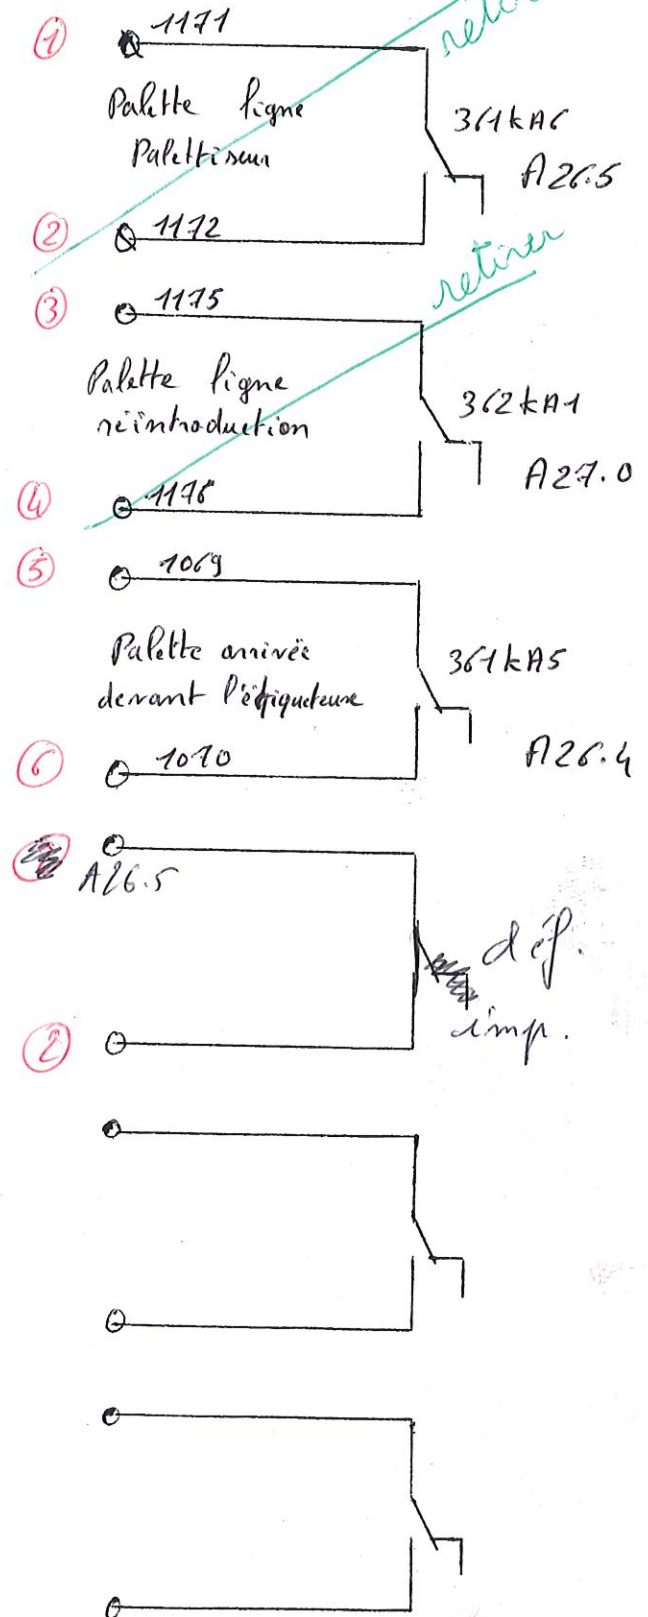 ① 1171
Palette ligne
Palettiseur
361kA6
A26.5
② 1172
retirer
③ 1175
Palette ligne
réintroduction
362kA1
A27.0
④ 1176
⑤ 1069
Palette arrivée
devant l'étiqueteuse
361kA5
A26.4
⑥ 1070
A26.5
déf.
imp.
②